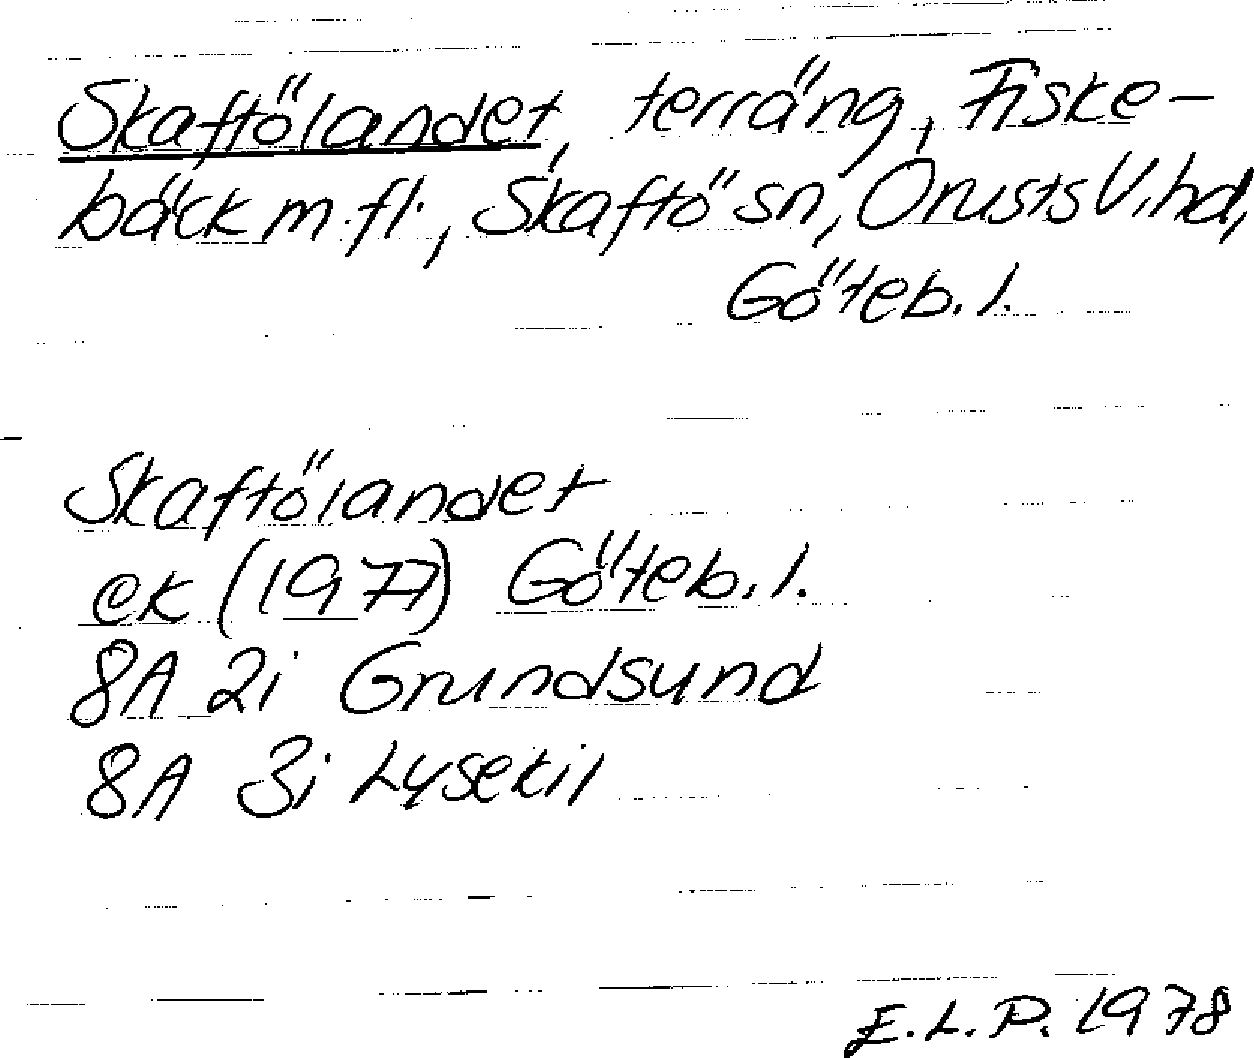 Skaftölandet, terräng, Fiske-
bäck m.fl., Skaftö sn, Orusts V. hd,
Göteb. l.
Skaftölandet
ek (1977) Göteb. l.
8A 2i Grundsund
8A 3i Lysekil
E.L.P. 1978